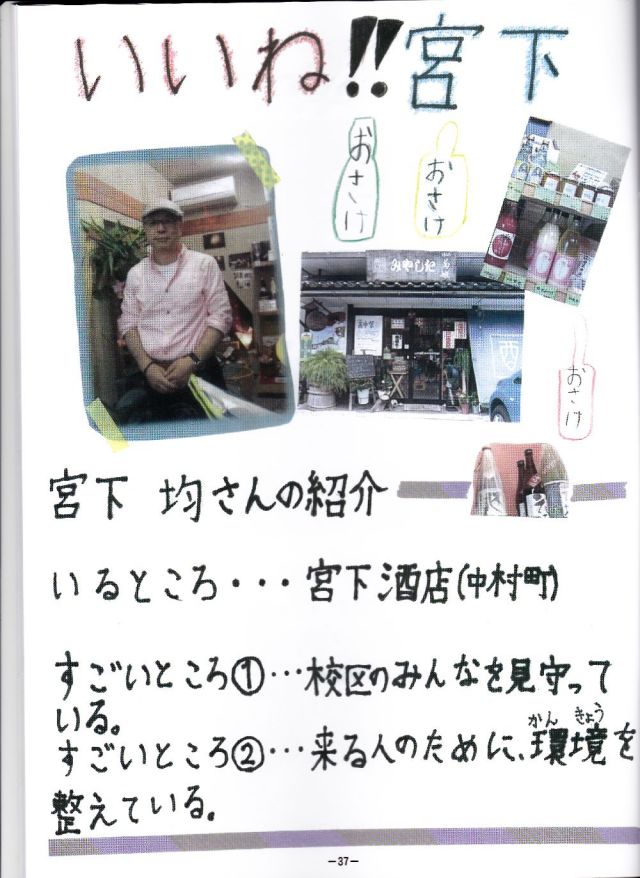 いいね!!宮下
おさけ
おさけ
みやした
おさけ
宮下 均さんの紹介
いるところ・・・宮下酒店(中村町)
すごいところ①・・・校区のみんなを見守って
いる。
すごいところ②・・・来る人のために、環境を
かんきょう
整えている。
-37-